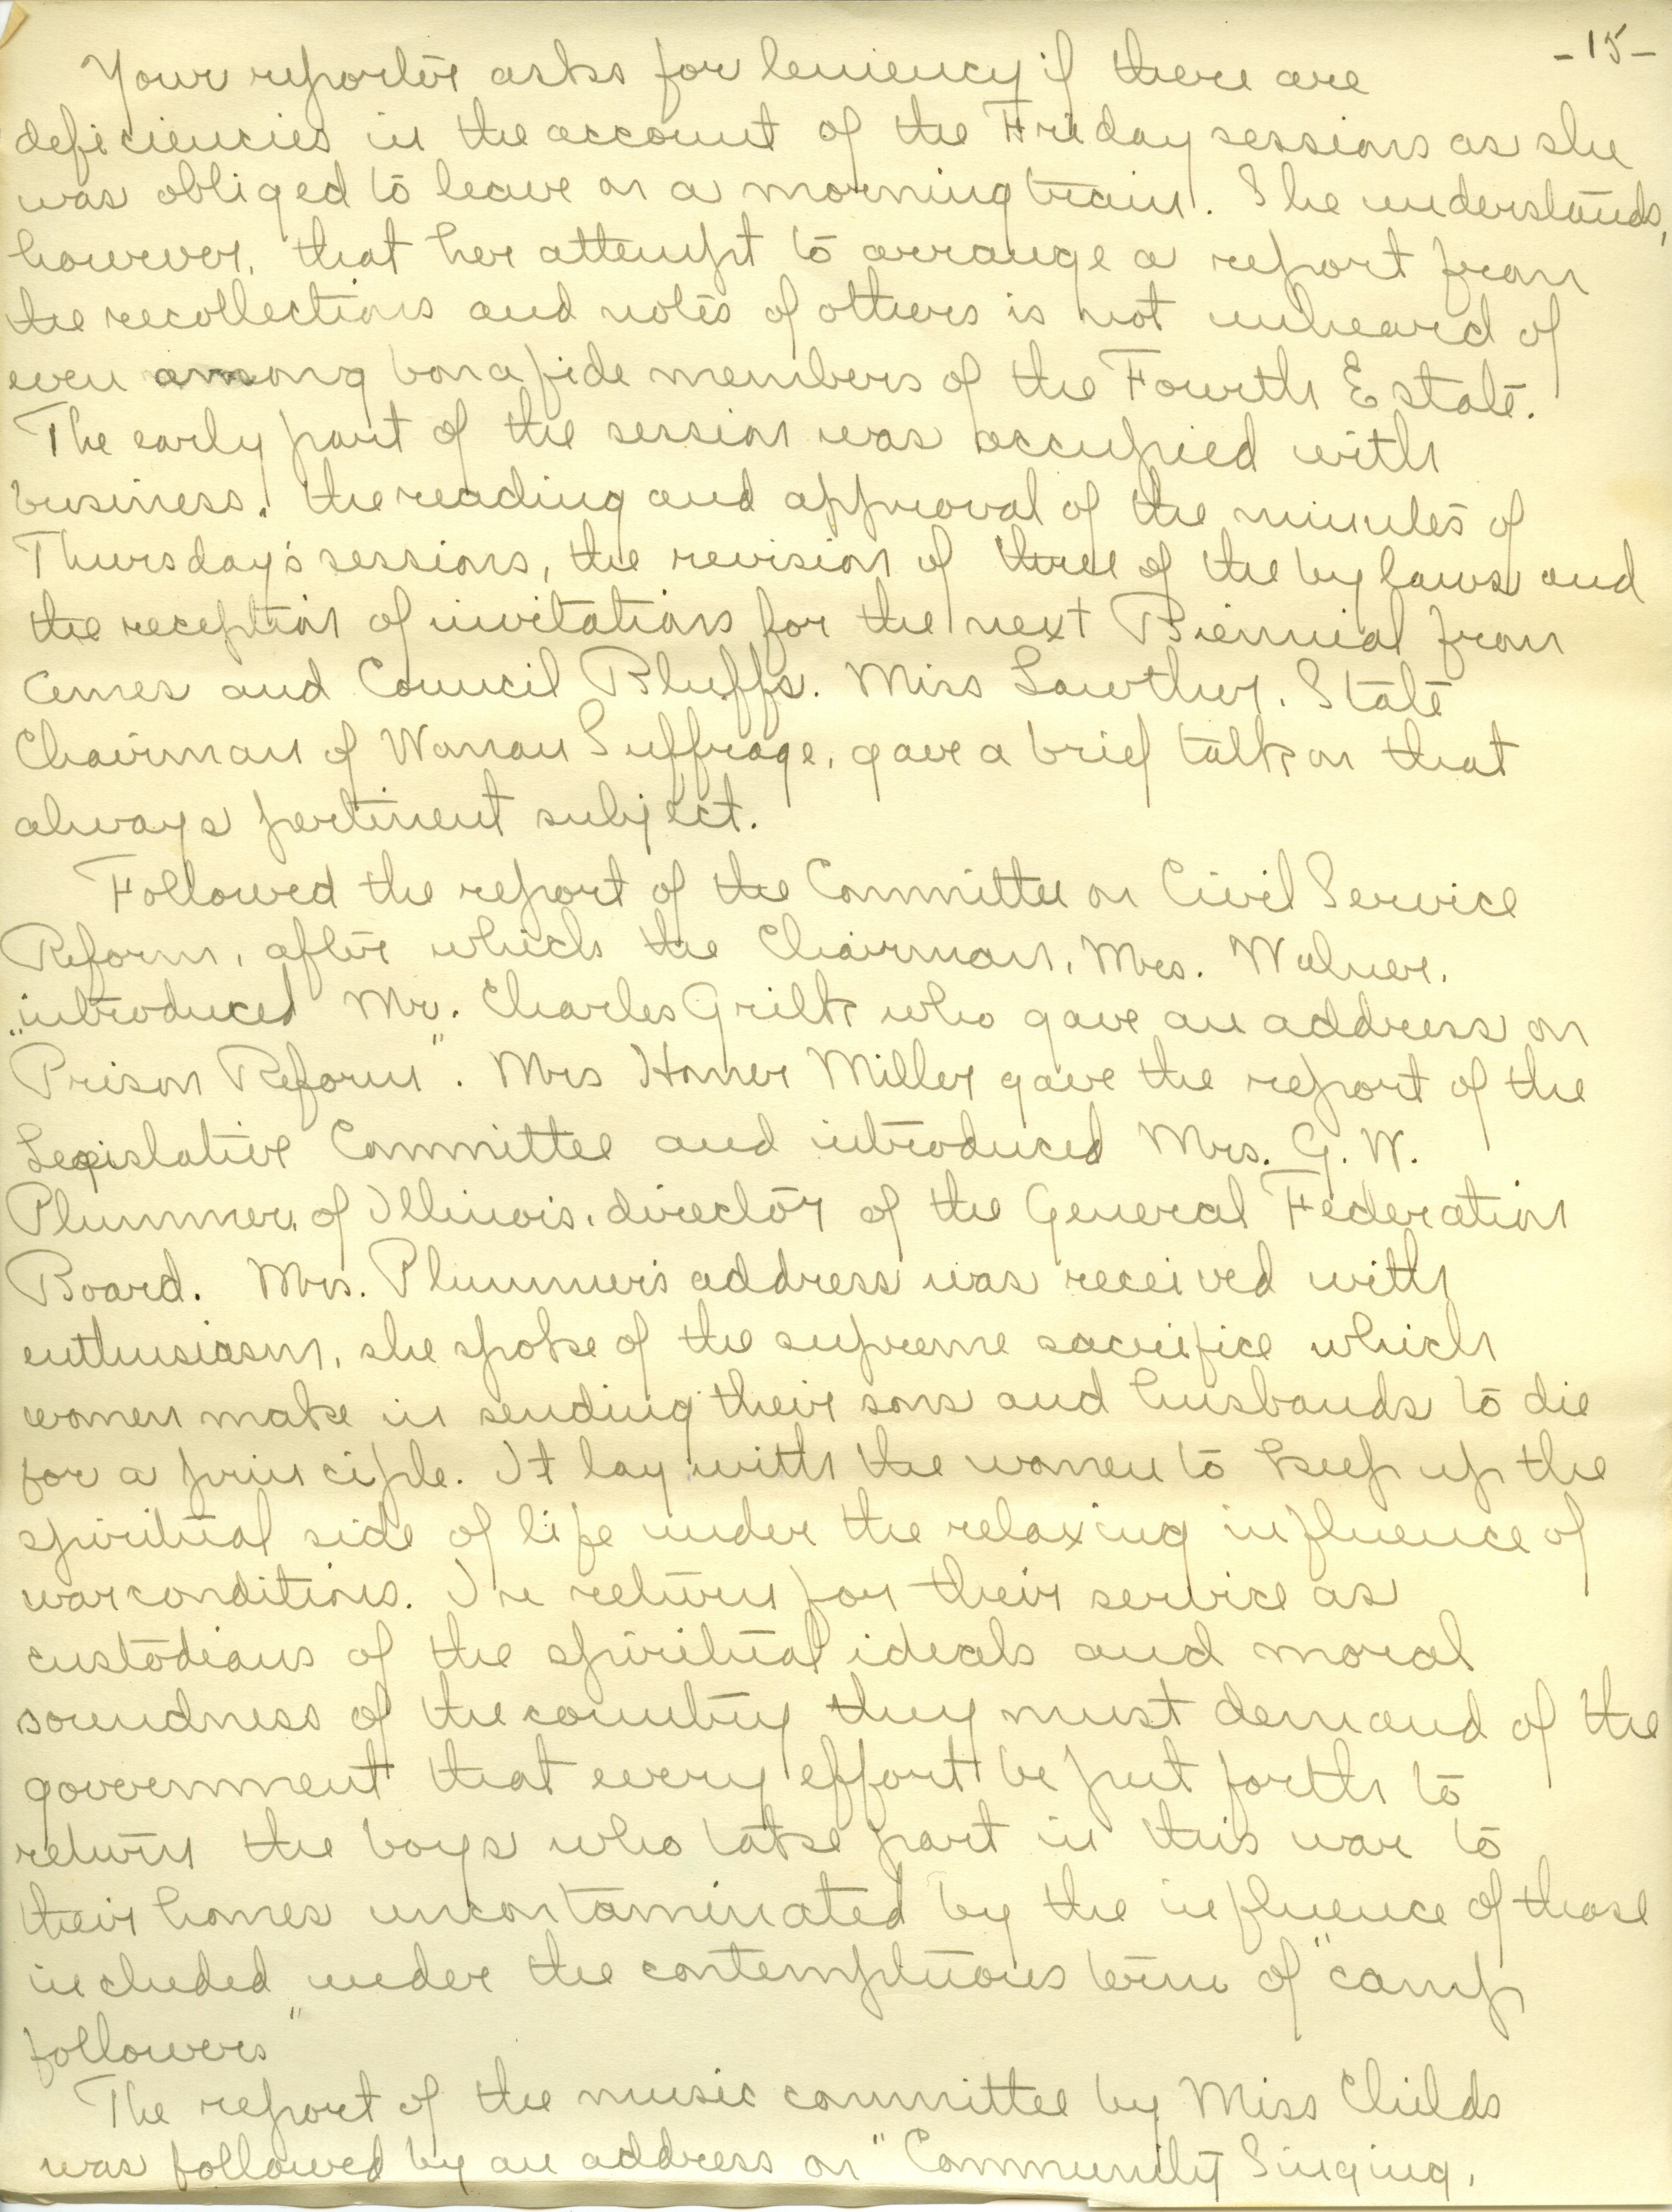 -15-
Your reporter asks for leniency if there are
deficiencies in the account of the Friday sessions as she
was obliged to leave on a morning train. She understands,
however, that her attempt to arrange a report from
the recollections and notes of others is not unheard of
even among bona fide members of the Fourth Estate.
The early part of the session was occupied with
business, the reading and approval of the minutes of
Thursday's sessions, the revision of three of the by laws and
the reception of invitations for the next Biennial from
Ames and Council Bluffs. Miss Lowther, State
Chairman of Woman Suffrage, gave a brief talk on that
always pertinent subject.
Followed the report of the Committee on Civil Service
Reform, after which the Chairman, Mrs.
introduced Mr. Charles Grilk who gave an address on
"Prison Reform". Mrs Homer Miller gave the report of the
Legislative Committee and introduced Mrs. G. W.
Plummer, of Illinois, director of the General Federation
Board. Mrs. Plummer's address was received with
enthusiasm, she spoke of the supreme sacrifice which
women make in sending their sons and husbands to die
for a principle. It lay with the women to keep up the
spiritual side of life under the relaxing influence of
war conditions. In return for their service as
custodians of the spiritual ideals and moral
soundness of the country they must demand of the
government that every effort be put forth to
return the boys who take part in this war to
their homes uncontaminated by the influence of those
included under the contemptuous term of "camp
followers"
The report of the music committee by Miss Childs
was followed by an address on "Community Singing,